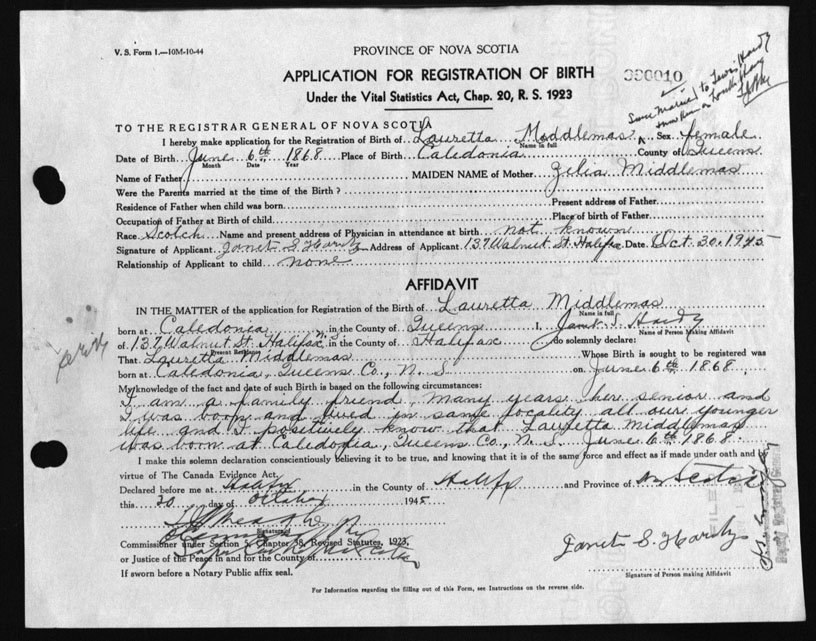 V. S. Form 1.—10M-10-44
PROVINCE OF NOVA SCOTIA
APPLICATION FOR REGISTRATION OF BIRTH
Under the Vital Statistics Act, Chap. 20, R. S. 1923
Since Married to Lewis Hardy
TO THE REGISTRAR GENERAL OF NOVA SCOTIA
I hereby make application for the Registration of Birth of Lauretta Middlemas Sex female
Name in full
Date of Birth June 6th 1868 Place of Birth Caledonia County of Queens
Month Date Year
Name of Father MAIDEN NAME of Mother Zelia Middlemas
Were the Parents married at the time of the Birth?
Residence of Father when child was born Present address of Father
Occupation of Father at Birth of child Place of birth of Father
Race Scotch Name and present address of Physician in attendance at birth not known
Signature of Applicant Janet S Hardy Address of Applicant 137 Walnut St. Halifax Date Oct. 30. 1945
Relationship of Applicant to child none
AFFIDAVIT
IN THE MATTER of the application for Registration of the Birth of Lauretta Middlemas
Name in full
born at Caledonia in the County of Queens I, Janet S. Hardy
Name of Person Making Affidavit
of 137 Walnut St. Halifax N.S. County of Halifax do solemnly declare:
Present Residence
That Lauretta Middlemas Whose Birth is sought to be registered was
born at Caledonia, Queens Co., N. S. on June 6th 1868.
My knowledge of the fact and date of such Birth is based on the following circumstances:
I am a family friend, many years her senior and
I was born and lived in same locality all our younger
life and I positively know that Lauretta Middlemas
was born at Caledonia, Queens Co., N. S. June 6th 1868.
I make this solemn declaration conscientiously believing it to be true, and knowing that it is of the same force and effect as if made under oath and by
virtue of The Canada Evidence Act.
Declared before me at Halifax in the County of Halifax and Province of N. Scotia
this 30 day of October 1945
Signature of
Commissioner under Section 5, Chapter 38, Revised Statutes, 1923,
or Justice of the Peace in and for the County of
If sworn before a Notary Public affix seal.
Janet S. Hardy
Signature of Person making Affidavit
Deputy Registrar General
For Information regarding the filling out of this Form, see Instructions on the reverse side.